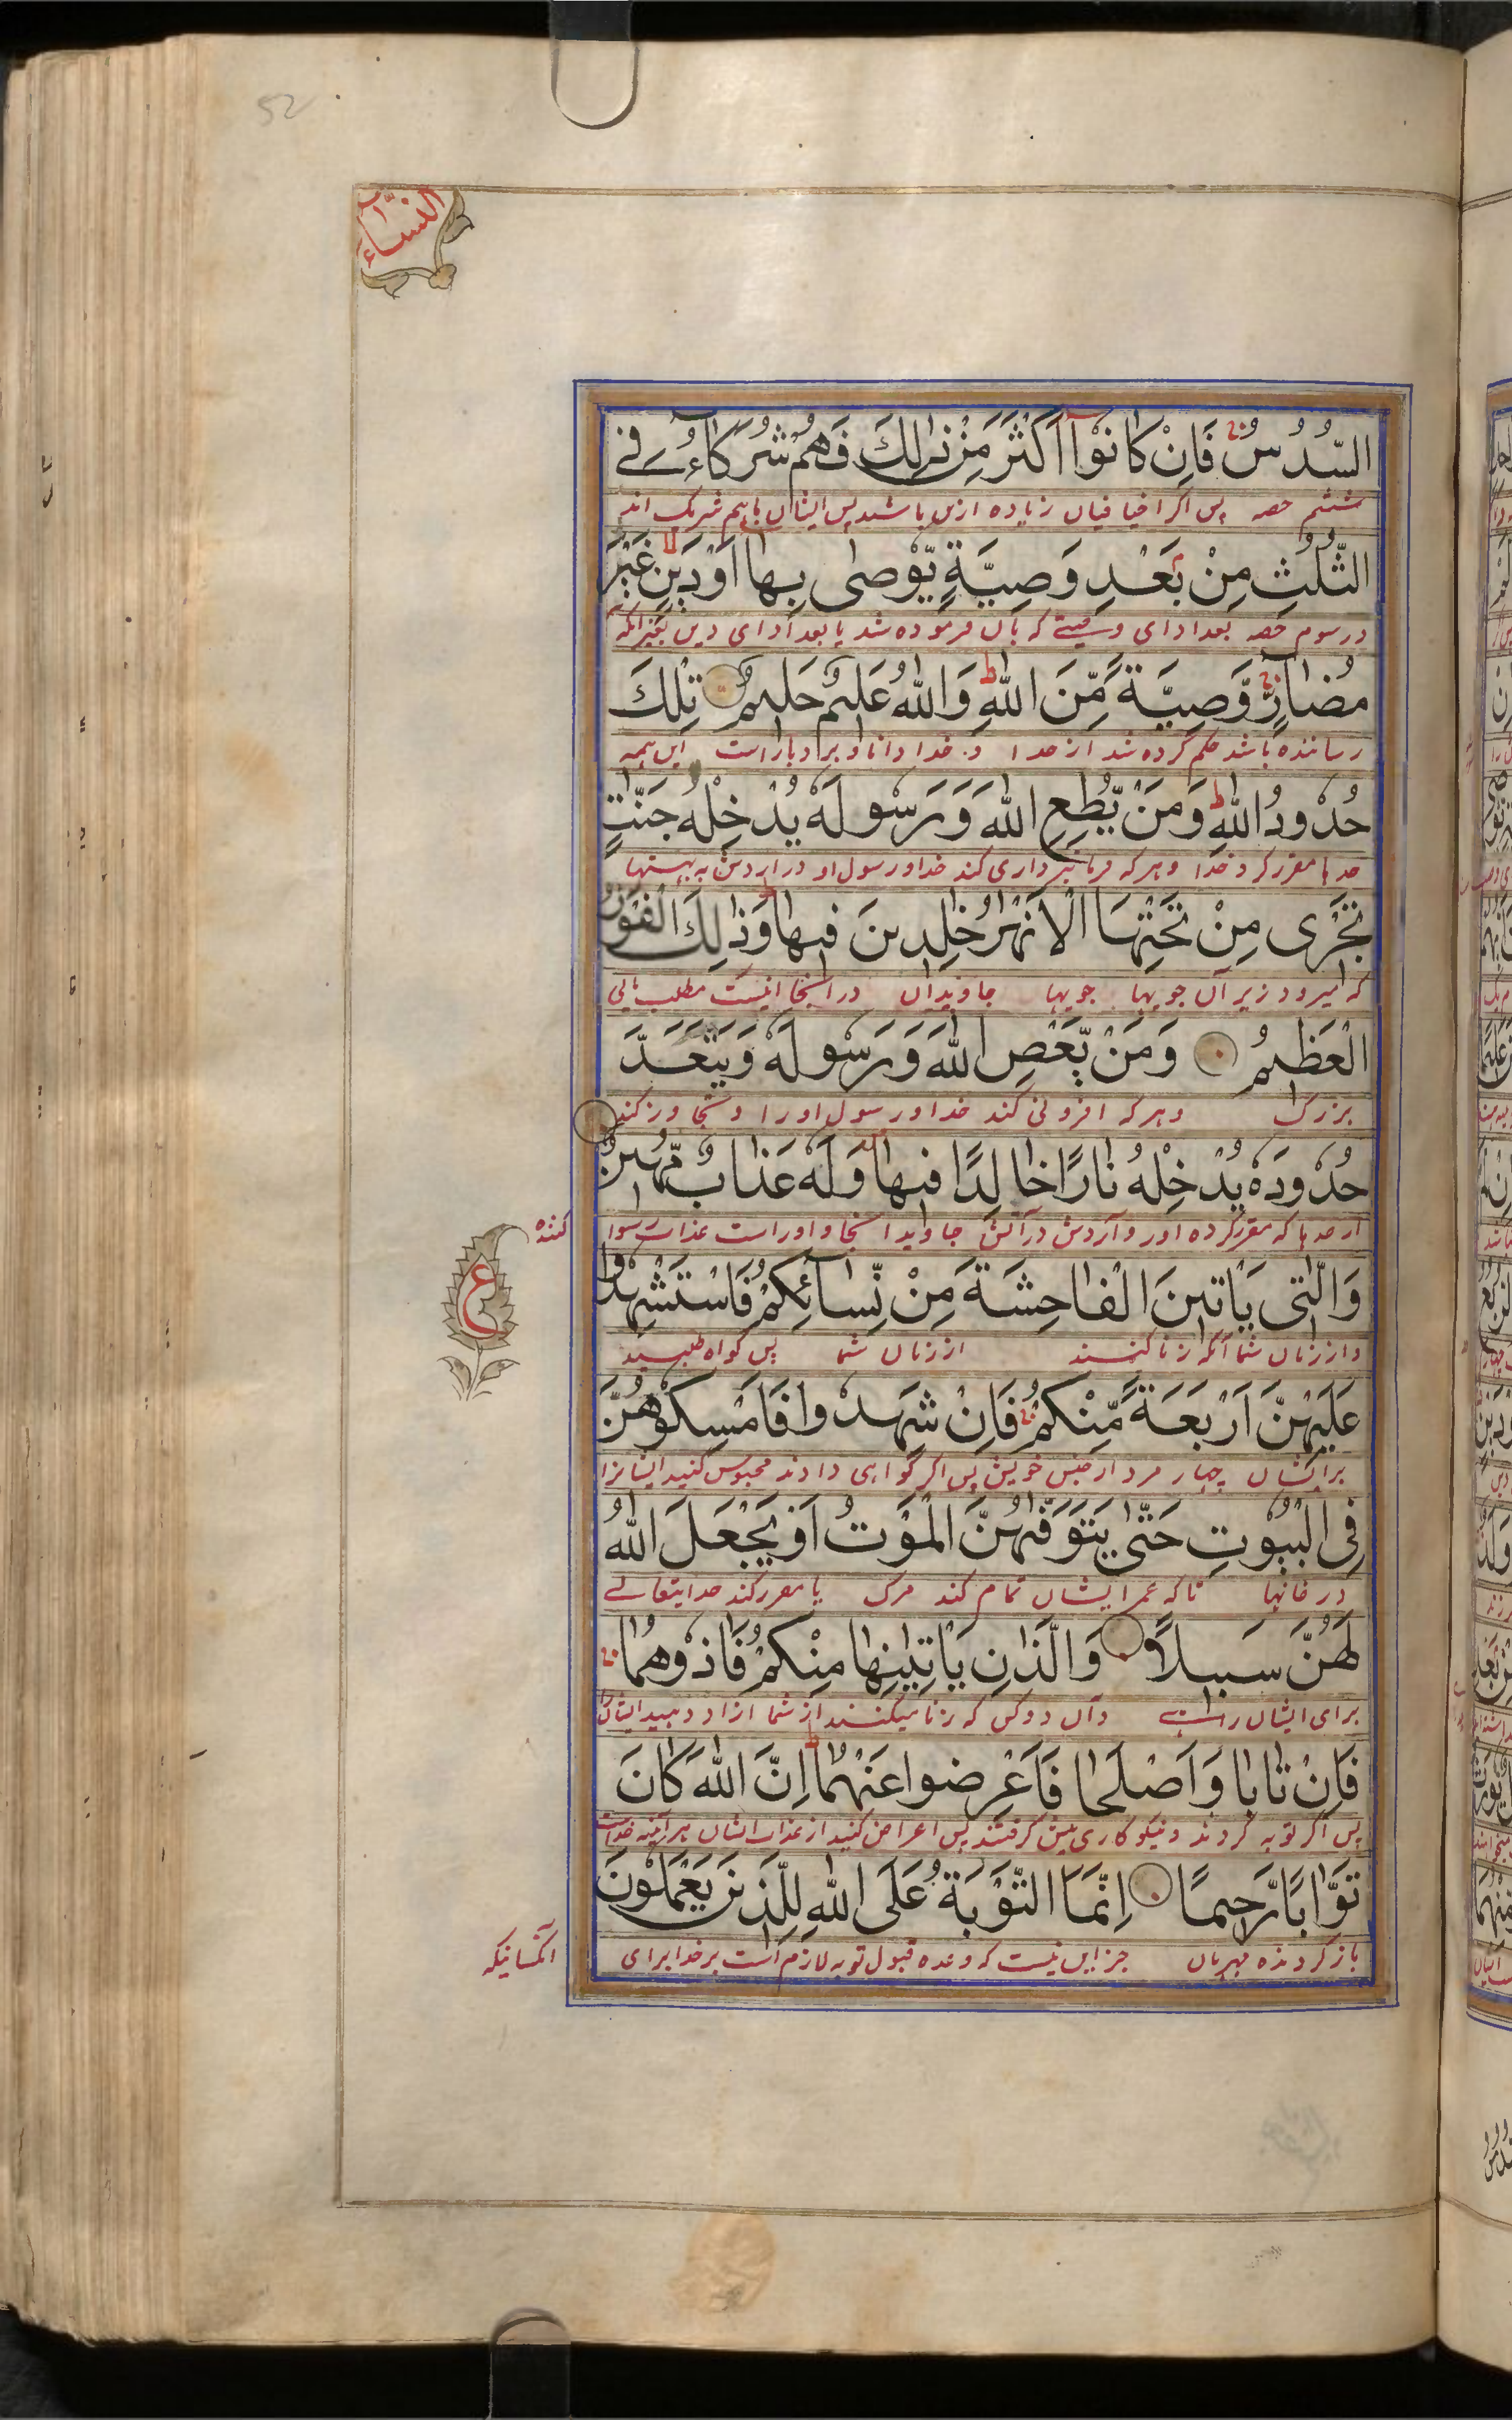 52
النساء
السُّدُسُ فَاِنْ كَانُوْٓا اَكْثَرَ مِنْ ذٰلِكَ فَهُمْ شُرَكَآءُ فِے
ششم حصه پس اگر اخیافیان زیاده ازین باشند پس ایشان باهم شریک اند
الثُّلُثِ مِنْ بَعْدِ وَصِيَّةٍ يُّوْصٰى بِهَآ اَوْ دَيْنٍ غَيْرَ
در سوم حصه بعد ادای وصیتے که بآن فرموده شد یا بعد ادای دین بغیر آنکه
مُضَآرٍّ وَصِيَّةً مِّنَ اللّٰهِ وَاللّٰهُ عَلِيْمٌ حَلِيْمٌ تِلْكَ
رساننده باشد حکم کرده شد از خدا و خدا دانا و بردبار است این همه
حُدُوْدُ اللّٰهِ وَمَنْ يُّطِعِ اللّٰهَ وَرَسُوْلَهٗ يُدْخِلْهُ جَنّٰتٍ
حدها مقرر کرد خدا و هر که فرمانبرداری کند خدا و رسول او در آردش به بهشتها
تَجْرِىْ مِنْ تَحْتِهَا الْاَنْهٰرُ خٰلِدِيْنَ فِيْهَا وَذٰلِكَ الْفَوْزُ
که میرود زیر آن جویها جویها جاویدان در آنجا اینست مطلب یابی
الْعَظِيْمُ وَمَنْ يَّعْصِ اللّٰهَ وَرَسُوْلَهٗ وَيَتَعَدَّ
بزرگ و هر که افزونی کند خدا و رسول او را و تجاوز کند
حُدُوْدَهٗ يُدْخِلْهُ نَارًا خَالِدًا فِيْهَا وَلَهٗ عَذَابٌ مُّهِيْنٌ
از حدها که مقرر کرده اور و آردش در آتش جاوید آنجا و اور است عذاب رسوا
کننده
ع
وَالّٰتِىْ يَاْتِيْنَ الْفَاحِشَةَ مِنْ نِّسَآئِكُمْ فَاسْتَشْهِدُوْا
و از زنان شما آنکه زنا کنند از زنان شما پس گواه طلبید
عَلَيْهِنَّ اَرْبَعَةً مِّنْكُمْ فَاِنْ شَهِدُوْا فَاَمْسِكُوْهُنَّ
بر ایشان چهار مرد از جنس خویش پس اگر گواهی دادند محبوس کنید ایشانرا
فِى الْبُيُوْتِ حَتّٰى يَتَوَفّٰهُنَّ الْمَوْتُ اَوْ يَجْعَلَ اللّٰهُ
در خانها تا که عمر ایشان تمام کند مرگ یا مقرر کند خدایتعالے
لَهُنَّ سَبِيْلًا وَالَّذٰنِ يَاْتِيٰنِهَا مِنْكُمْ فَاٰذُوْهُمَا
برای ایشان راهے و آن دو کس که زنا میکنند از شما آزار دهید ایشان را
فَاِنْ تَابَا وَاَصْلَحَا فَاَعْرِضُوْا عَنْهُمَا اِنَّ اللّٰهَ كَانَ
پس اگر توبه کردند و نیکوکاری پیش گرفتند پس اعراض کنید از عذاب ایشان هر آئینه خداست
تَوَّابًا رَّحِيْمًا اِنَّمَا التَّوْبَةُ عَلَى اللّٰهِ لِلَّذِيْنَ يَعْمَلُوْنَ
باز گردنده مهربان جز این نیست که وعده قبول توبه لازم است بر خدا برای
آنکسانیکه